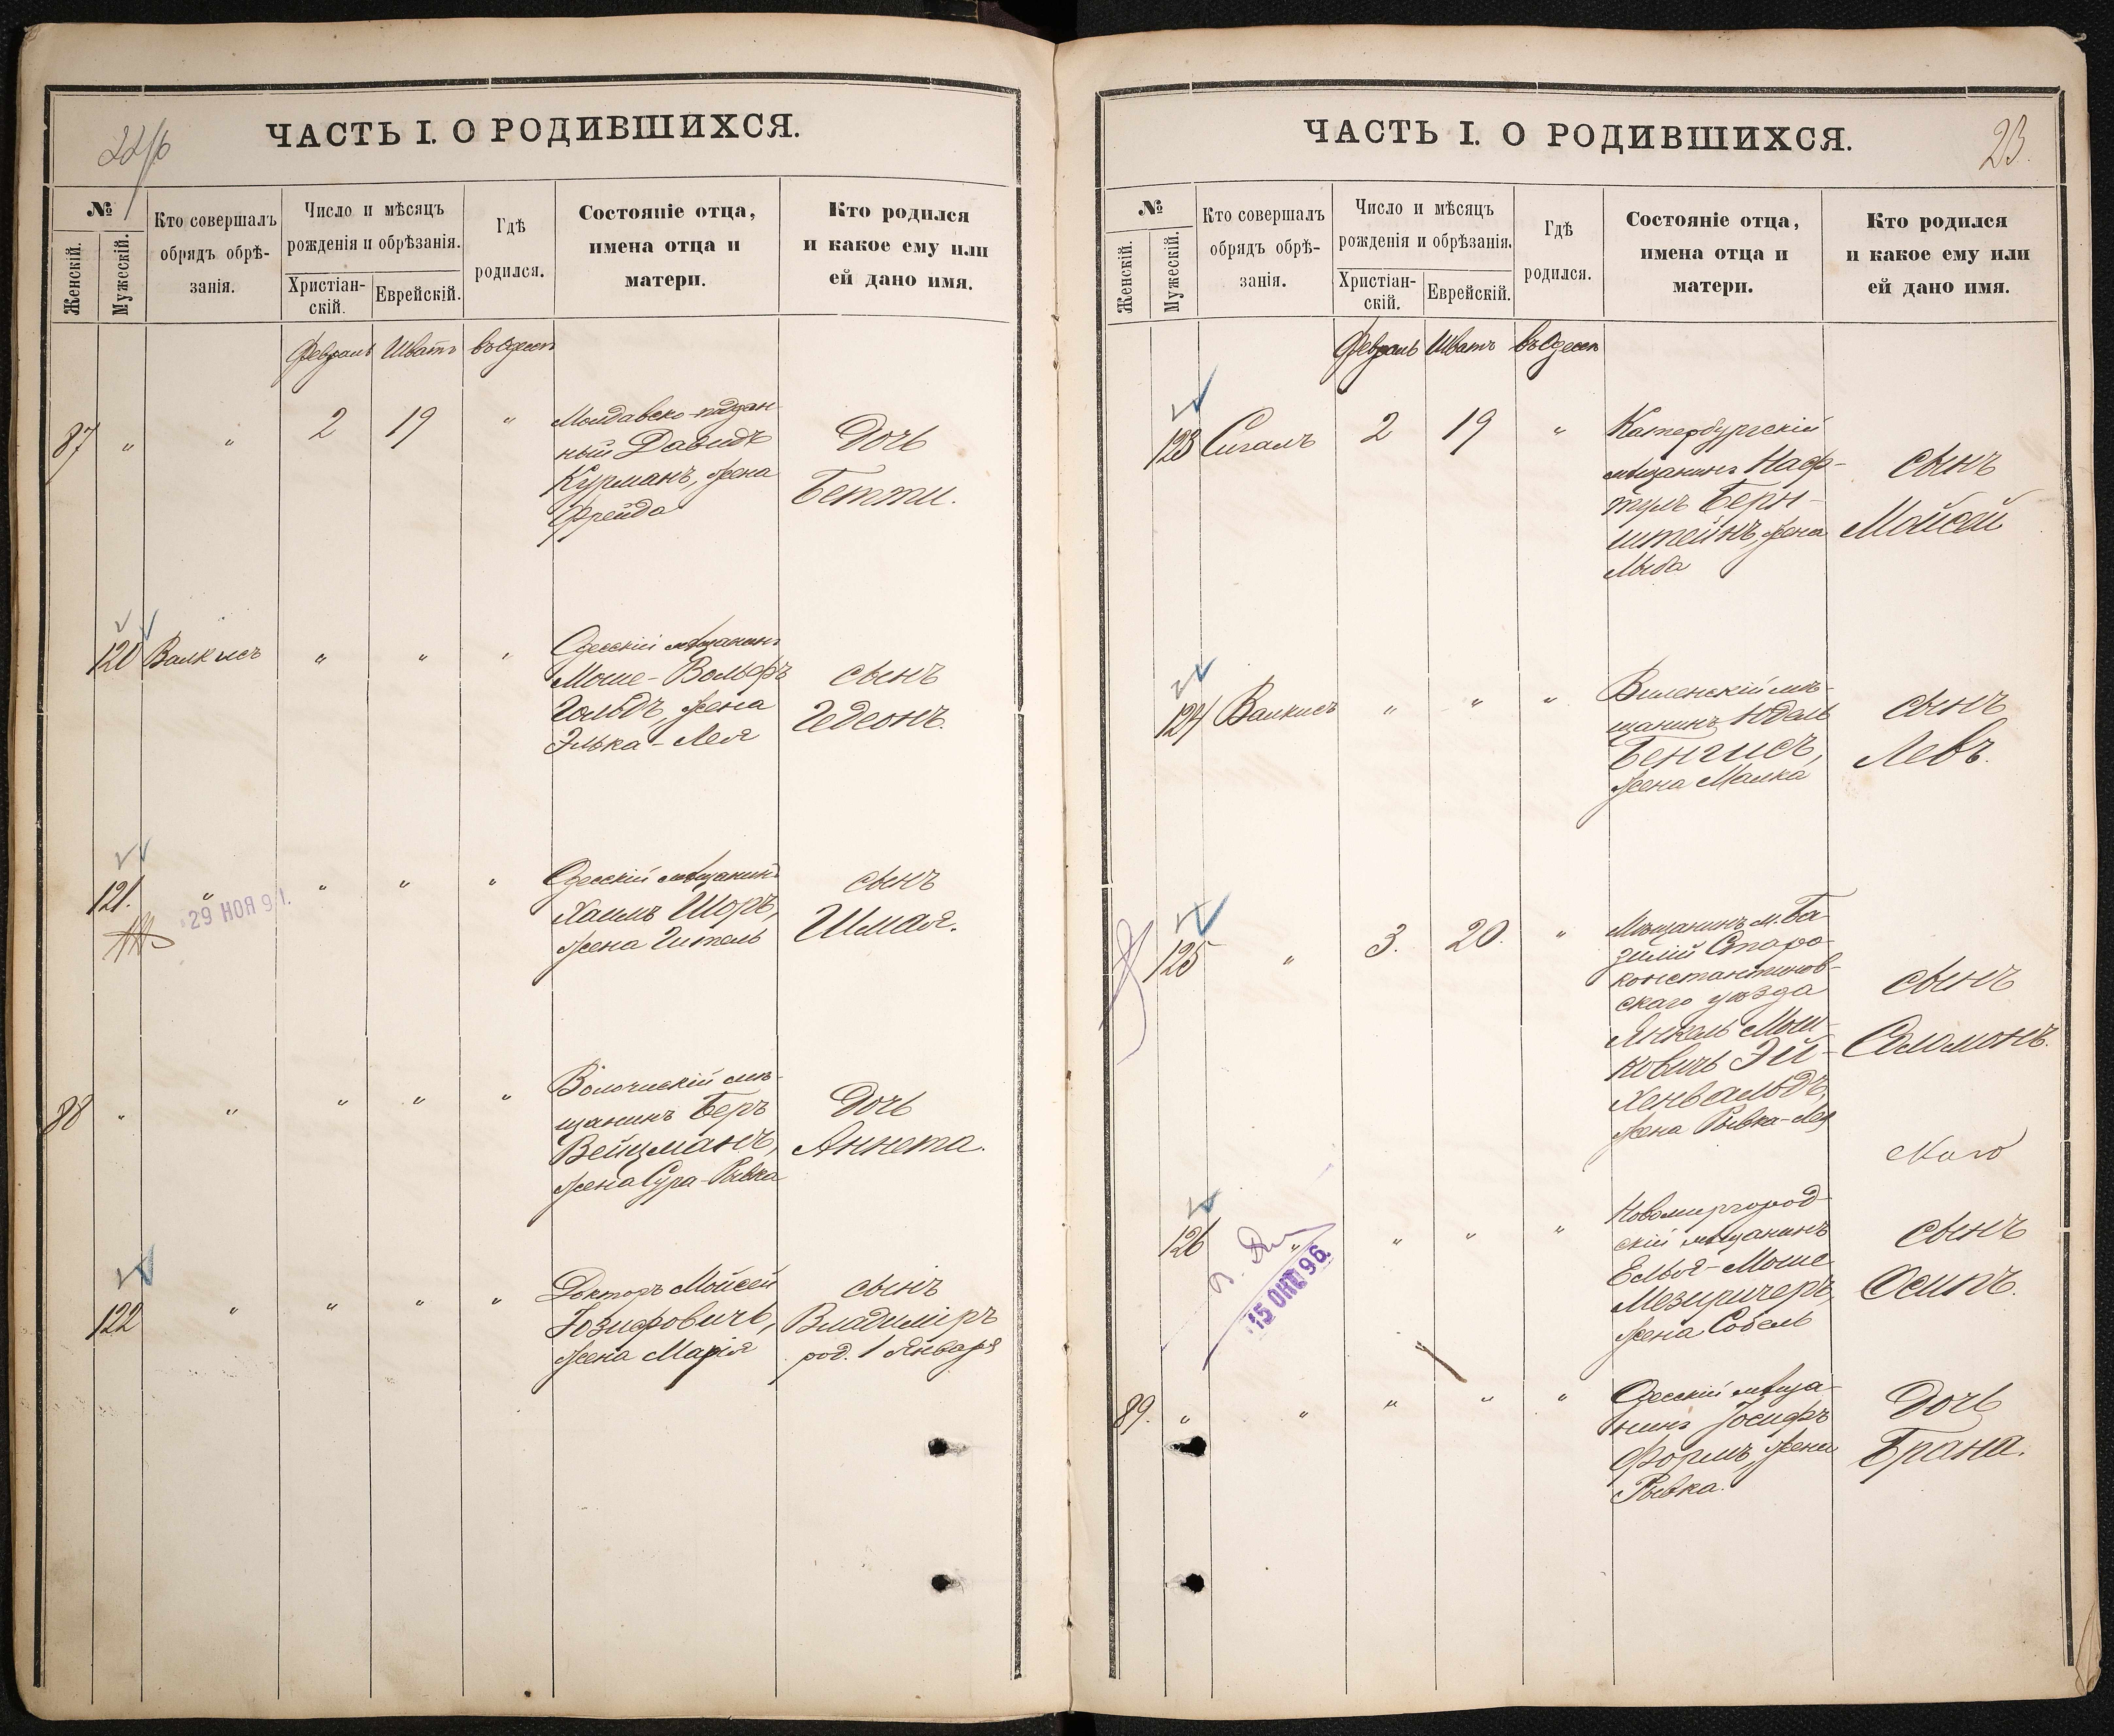 22/6
ЧАСТЬ I. О РОДИВШИХСЯ.
№
Женскій.
Мужескій.
Кто совершалъ
обрядъ обрѣ-
занія.
Число и мѣсяцъ
рожденія и обрѣзанія.
Христіан-
скій.
Еврейскій.
Гдѣ
родился.
Состояніе отца,
имена отца и
матери.
Кто родился
и какое ему или
ей дано имя.
Февраль Шватъ въ Одессѣ
87 " " 2 19 "
Молдавско-поддан-
ный Давидъ
Курманъ, жена
Фрейда
Дочь
Бетти.
120 Валкисъ " " "
Одесскій мѣщанинъ
Моше-Вольфъ
Гольдъ, жена
Элька-Лея
сынъ
Гедеонъ.
121. " " " "
29 НОЯ 91.
Одесскій мѣщанинъ
Хаимъ Шоръ,
жена Гитель
сынъ
Шмая.
88 " " " " "
Волочискій мѣ-
щанинъ Беръ
Вейцманъ,
жена Сура-Рывка
Дочь
Аннета.
122 " " " "
Докторъ Мойсей
Іозифовичъ,
жена Марія
сынъ
Владиміръ
род. 1 Января
23.
ЧАСТЬ I. О РОДИВШИХСЯ.
№
Женскій.
Мужескій.
Кто совершалъ
обрядъ обрѣ-
занія.
Число и мѣсяцъ
рожденія и обрѣзанія.
Христіан-
скій.
Еврейскій.
Гдѣ
родился.
Состояніе отца,
имена отца и
матери.
Кто родился
и какое ему или
ей дано имя.
Февраль Шватъ въ Одессѣ
123 Сигалъ 2 19 "
Катербургскій
мѣщанинъ Наф-
тулъ Берн-
штейнъ, жена
сынъ
Мойсей
124 Валкисъ " " "
Виленскій мѣ-
щанинъ Юдель
Бенгисъ,
жена Малка
сынъ
Левъ.
125 " 3. 20. "
Мѣщанинъ м. Ба
зилій Старо-
константинов-
скаго уѣзда
Янкель Мош-
ковичъ Эй-
хенвальдъ,
жена Рывка-Лея
сынъ
Соломонъ.
126 " " " "
15 ОКТ 96.
Новомиргород-
скій мѣщанинъ
Елья-Моше
Мезиричеръ,
жена Собель
сынъ
Осипъ.
89. " " " " "
Одесскій мѣща-
нинъ Іосифъ
Формъ, жена
Рывка.
Дочь
Брана.